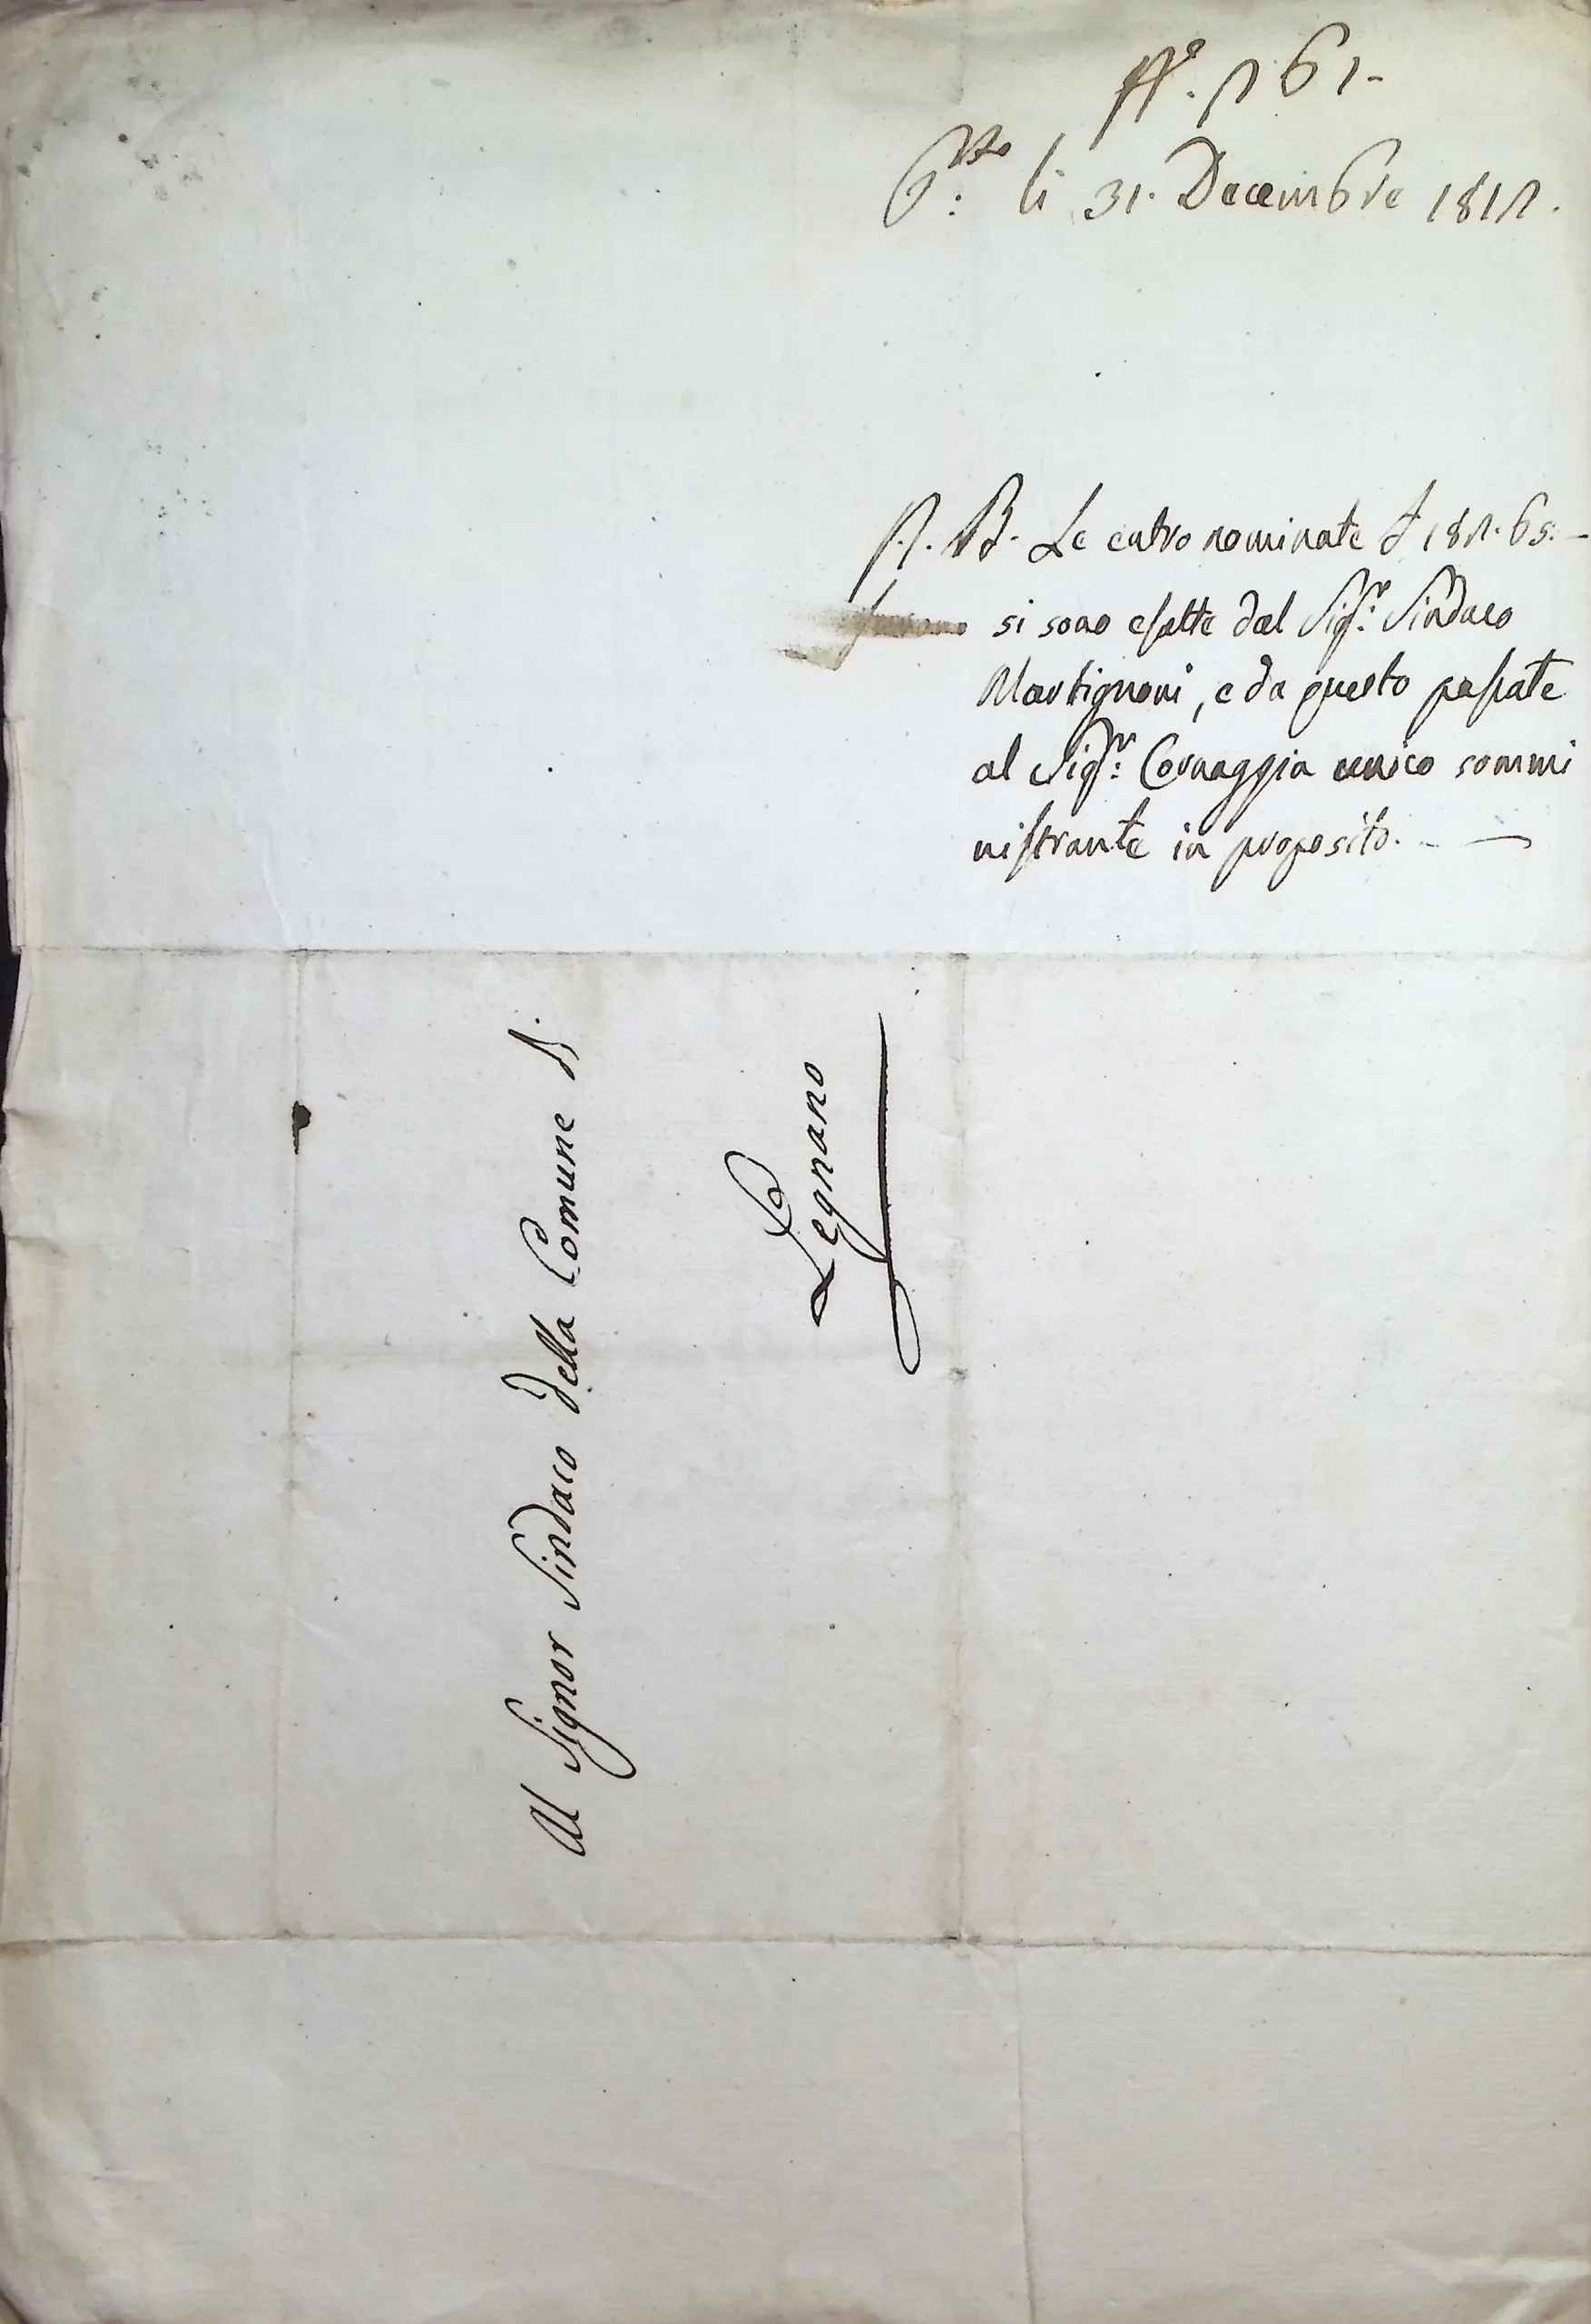 N.º 261-
P.to: li 31. Decembre 1812.
N. B. Le entro nominate £ 182. 65.-
si sono esatte dal Sig.r: Sindaco
Martignoni, e da questo passate
al Sig.r: Cornaggia unico sommi
nistrante in proposito. - —
Al Signor Sindaco della Comune di
Legnano